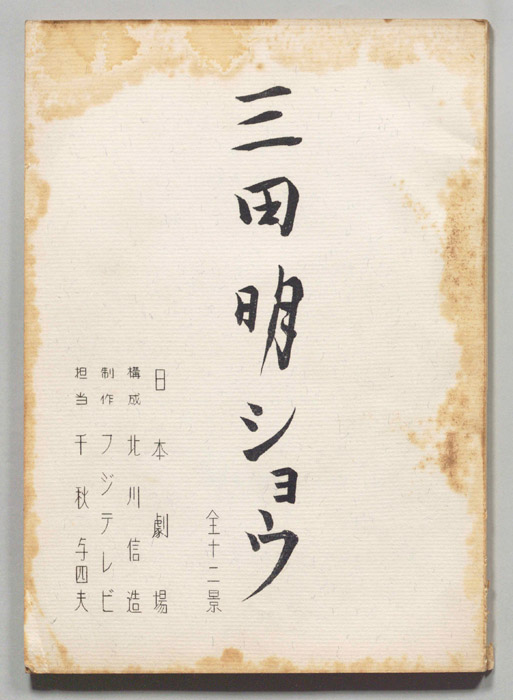 三田明ショウ
全十二景
日本劇場
構成 北川信造
制作 フジテレビ
担当 千秋与四夫